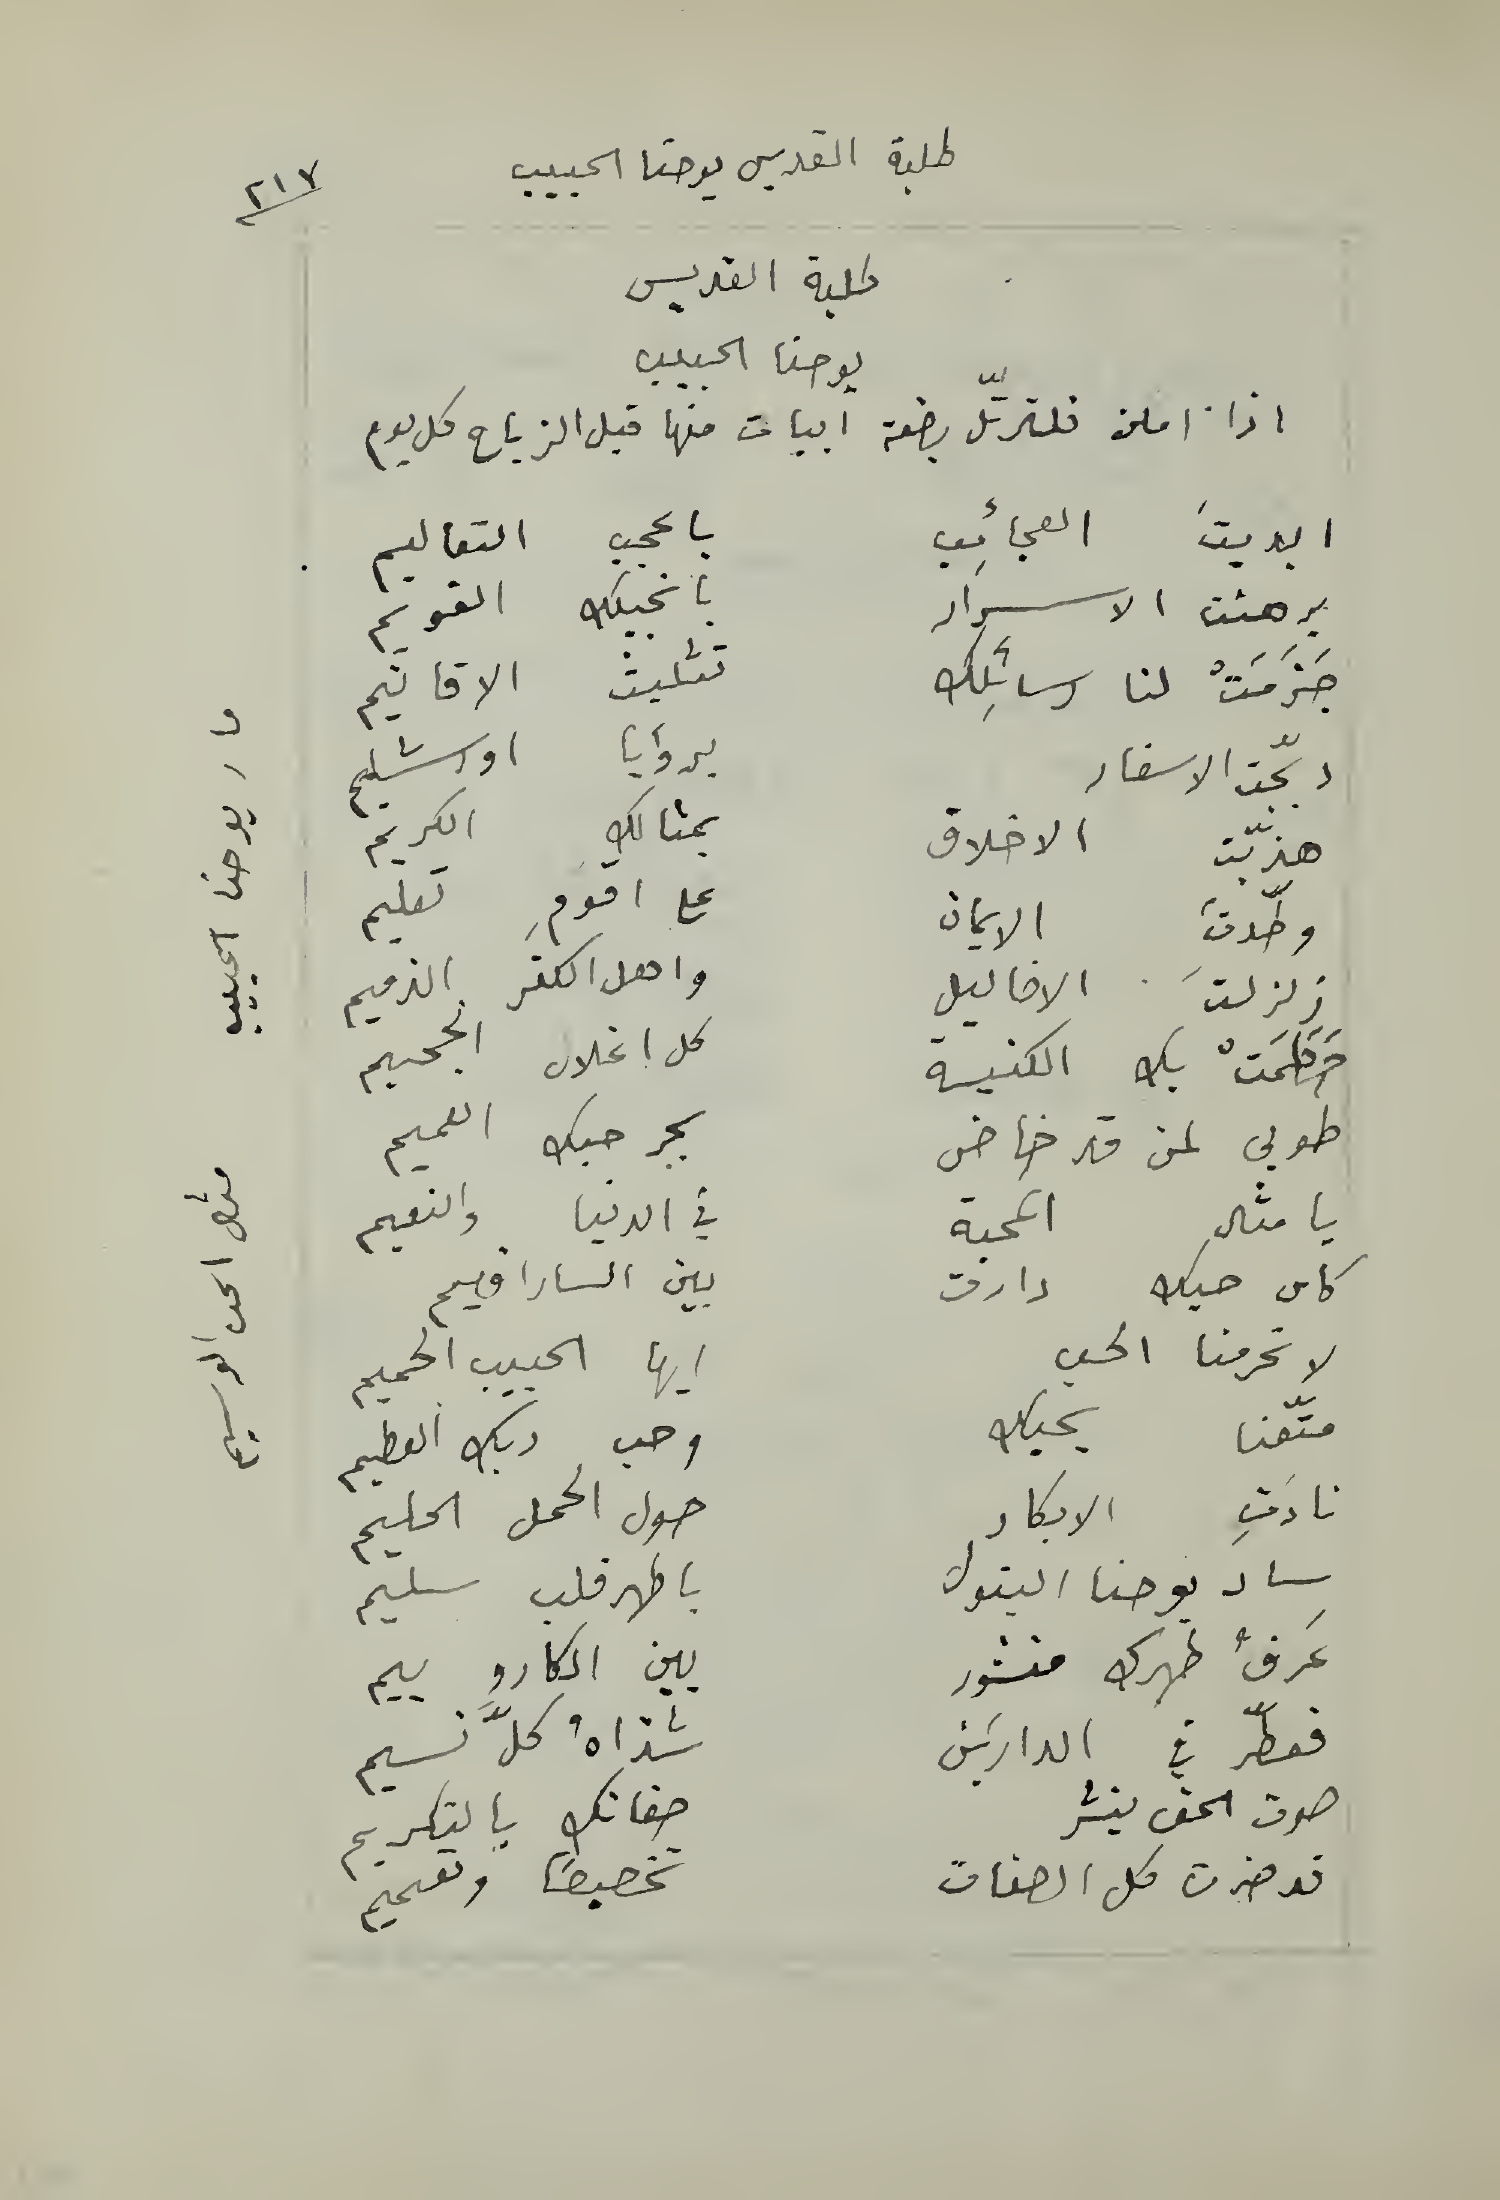 طلبة القديس يوحنا الحبيب
٢١٧
طلبة القديس
يوحنا الحبيب
اذا امكن فلترتّل بضعة ابيات منها قبل الزياح كل يوم
ابديتَ العجائب باعجب التعاليم
برهنت الاسرار بانجيلك القويم
جَزَمَتْ لنا رسائلك تثليث الاقانيم
دبّجت الاسفار برؤيا اورشليم
هذبّت الاخلاق بمثالك الكريم
وطّدتَ الايمان على اقوم تعليم
زلزلتَ الاضاليل واهل الكفر الذميم
حَطَمَتْ بك الكنيسة كل اغلال الجحيم
طوبى لمن قد خاض بحر حبك العميم
يا مثال المحبة في الدنيا والنعيم
كاس حبك دارت بين السارافيم
لا تحرمنا الحب ايها الحبيب الحميم
متّعنا بحبك وحب ربك العظيم
نادتِ الابكار حول الحمل الحليم
ساد يوحنا البتول باطهر قلب سليم
عَرفُ طهرك منشور بين الكاروبيم
فعطّر في الدارين شذاهُ كلَّ نسيم
صوت الحق ينشر صفاتك بالتكريم
قد حزت كل الصفات تخصيصًا وتعميم
مار يوحنا الحبيب